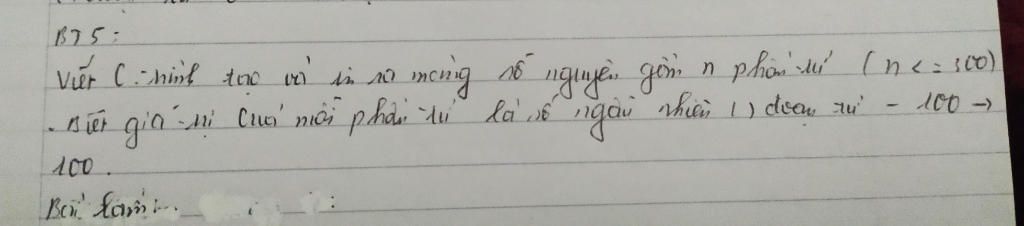 BT5:
Viết C.trình tạo và in ra mảng số nguyên gồm n phần tử (n <= 100)
. Biết giá trị của mỗi phần tử là số ngẫu nhiên () đoạn từ - 100 →
100.
Bài làm: